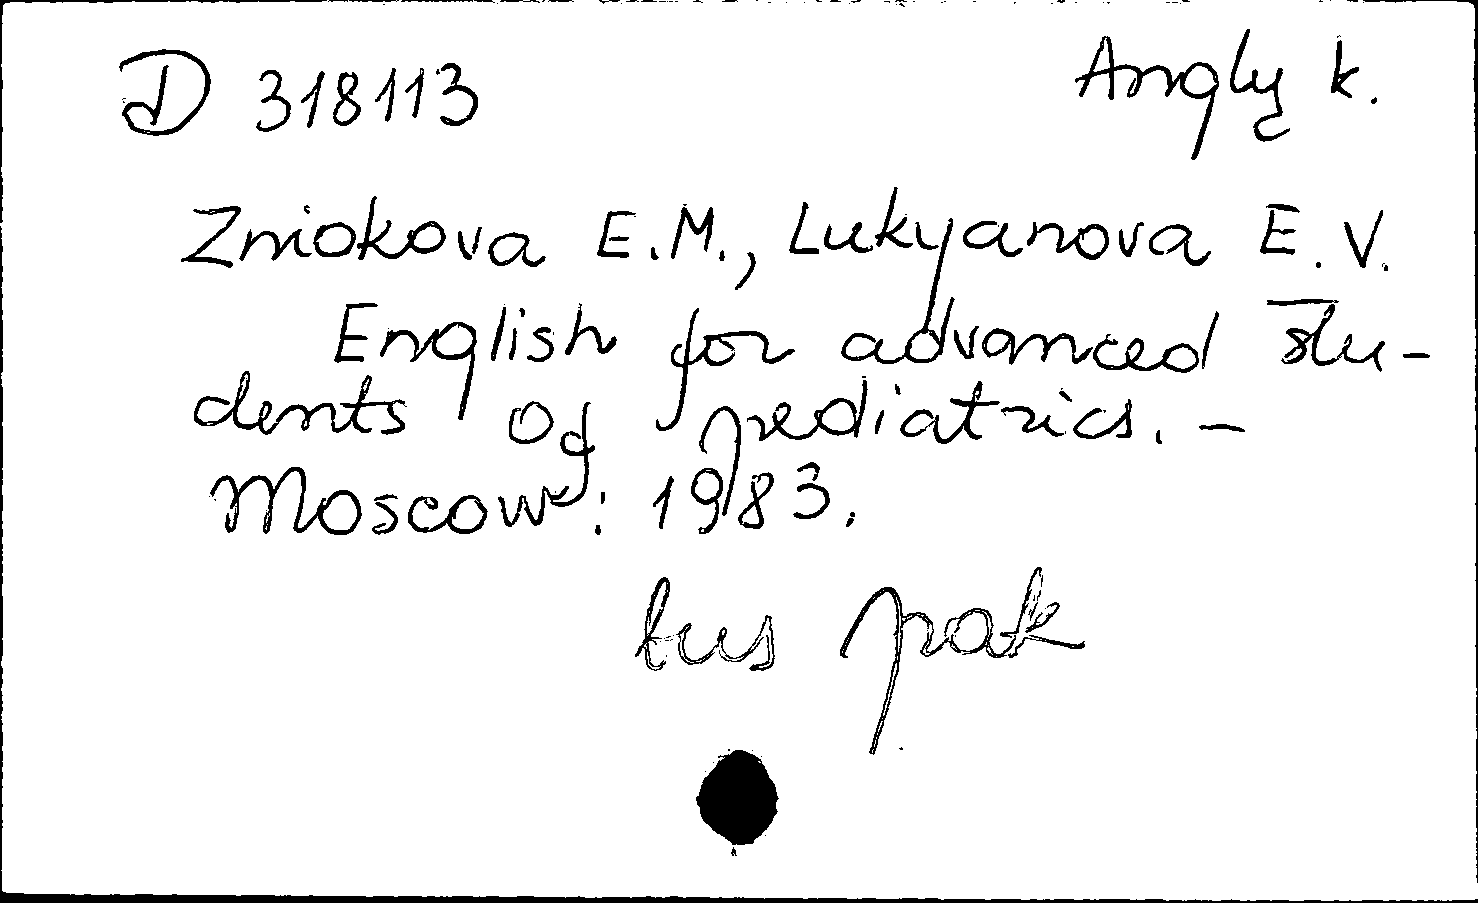 D 318113
Anglų k.
Zniokova E.M., Lukyanova E.V.
English for advanced stu-
dents of pediatrics. –
Moscow: 1983.
bus pak